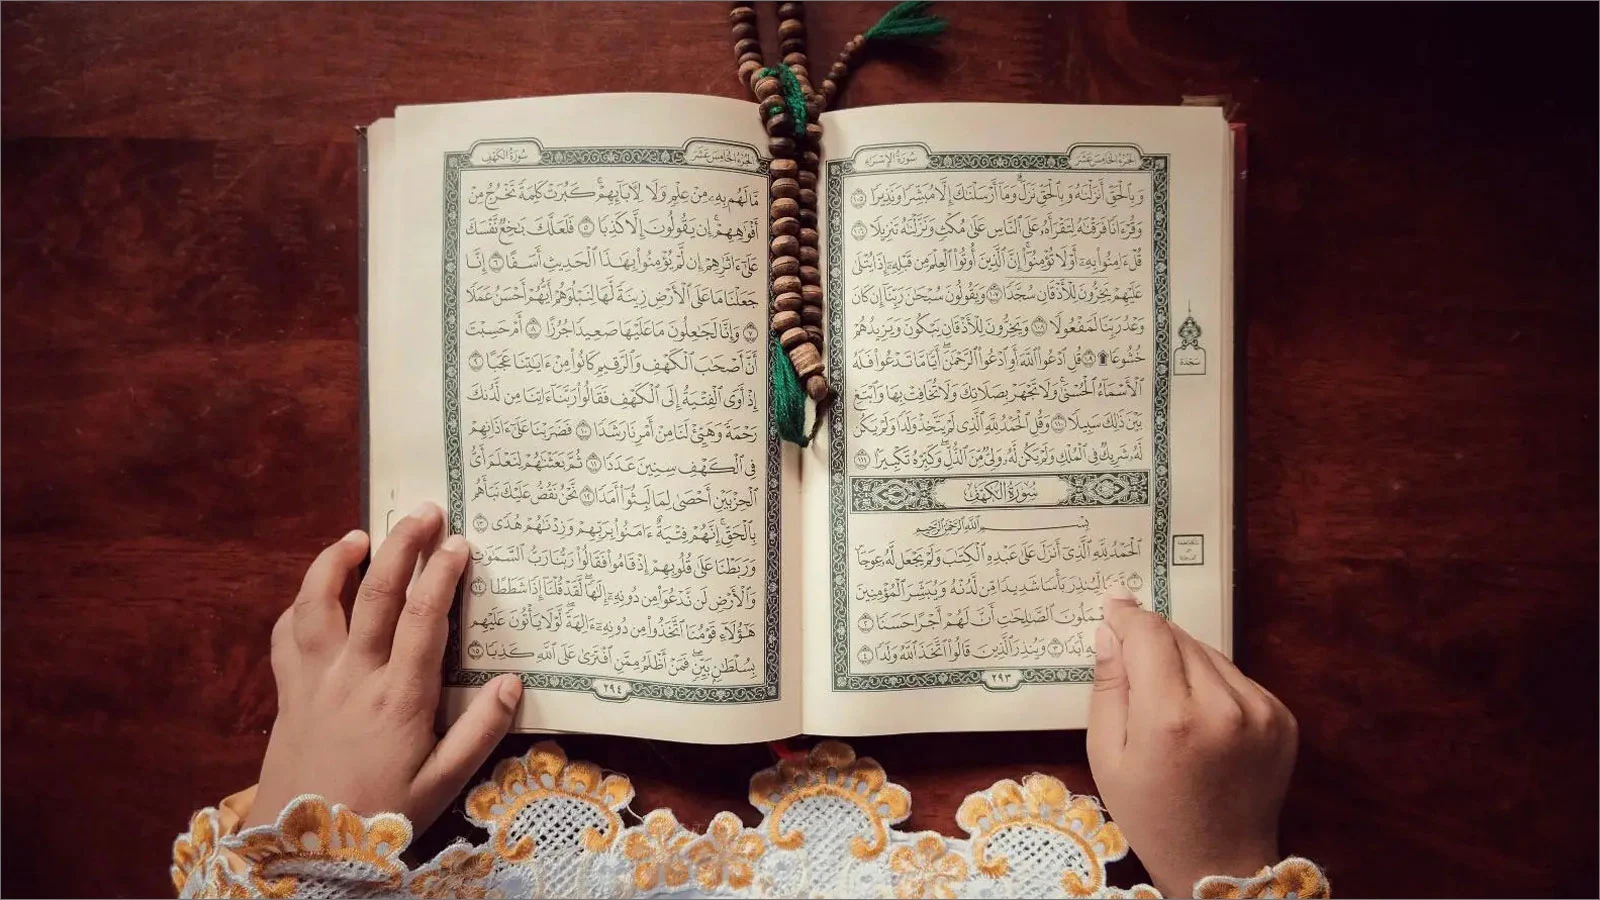 الجزء الخامس عشر
سورة الإسراء
وَبِٱلْحَقِّ أَنزَلْنَٰهُ وَبِٱلْحَقِّ نَزَلَ وَمَآ أَرْسَلْنَٰكَ إِلَّا مُبَشِّرًا وَنَذِيرًا ١٠٥
وَقُرْءَانًا فَرَقْنَٰهُ لِتَقْرَأَهُۥ عَلَى ٱلنَّاسِ عَلَىٰ مُكْثٍ وَنَزَّلْنَٰهُ تَنزِيلًا ١٠٦
قُلْ ءَامِنُوا۟ بِهِۦٓ أَوْ لَا تُؤْمِنُوٓا۟ إِنَّ ٱلَّذِينَ أُوتُوا۟ ٱلْعِلْمَ مِن قَبْلِهِۦٓ إِذَا يُتْلَىٰ
عَلَيْهِمْ يَخِرُّونَ لِلْأَذْقَانِ سُجَّدًا ١٠٧ وَيَقُولُونَ سُبْحَٰنَ رَبِّنَآ إِن كَانَ
وَعْدُ رَبِّنَا لَمَفْعُولًا ١٠٨ وَيَخِرُّونَ لِلْأَذْقَانِ يَبْكُونَ وَيَزِيدُهُمْ
خُشُوعًا ۩ ١٠٩ قُلِ ٱدْعُوا۟ ٱللَّهَ أَوِ ٱدْعُوا۟ ٱلرَّحْمَٰنَ أَيًّا مَّا تَدْعُوا۟ فَلَهُ
ٱلْأَسْمَآءُ ٱلْحُسْنَىٰ وَلَا تَجْهَرْ بِصَلَاتِكَ وَلَا تُخَافِتْ بِهَا وَٱبْتَغِ
بَيْنَ ذَٰلِكَ سَبِيلًا ١١٠ وَقُلِ ٱلْحَمْدُ لِلَّهِ ٱلَّذِى لَمْ يَتَّخِذْ وَلَدًا وَلَمْ يَكُن
لَّهُۥ شَرِيكٌ فِى ٱلْمُلْكِ وَلَمْ يَكُن لَّهُۥ وَلِىٌّ مِّنَ ٱلذُّلِّ وَكَبِّرْهُ تَكْبِيرًۢا ١١١
سُورَةُ الكَهْفِ
بِسْمِ ٱللَّهِ ٱلرَّحْمَٰنِ ٱلرَّحِيمِ
ٱلْحَمْدُ لِلَّهِ ٱلَّذِىٓ أَنزَلَ عَلَىٰ عَبْدِهِ ٱلْكِتَٰبَ وَلَمْ يَجْعَل لَّهُۥ عِوَجَا
١ لِّيُنذِرَ بَأْسًا شَدِيدًا مِّن لَّدُنْهُ وَيُبَشِّرَ ٱلْمُؤْمِنِينَ
ٱلصَّٰلِحَٰتِ أَنَّ لَهُمْ أَجْرًا حَسَنًا ٢
أَبَدًا ٣ وَيُنذِرَ ٱلَّذِينَ قَالُوا۟ ٱتَّخَذَ ٱللَّهُ وَلَدًا ٤
٢٩٣
سجدة
الجزء الخامس عشر
سورة الكهف
مَّا لَهُم بِهِۦ مِنْ عِلْمٍ وَلَا لِءَابَآئِهِمْ كَبُرَتْ كَلِمَةً تَخْرُجُ مِنْ
أَفْوَٰهِهِمْ إِن يَقُولُونَ إِلَّا كَذِبًا ٥ فَلَعَلَّكَ بَٰخِعٌ نَّفْسَكَ
عَلَىٰٓ ءَاثَٰرِهِمْ إِن لَّمْ يُؤْمِنُوا۟ بِهَٰذَا ٱلْحَدِيثِ أَسَفًا ٦ إِنَّا
جَعَلْنَا مَا عَلَى ٱلْأَرْضِ زِينَةً لَّهَا لِنَبْلُوَهُمْ أَيُّهُمْ أَحْسَنُ عَمَلًا
٧ وَإِنَّا لَجَٰعِلُونَ مَا عَلَيْهَا صَعِيدًا جُرُزًا ٨ أَمْ حَسِبْتَ
أَنَّ أَصْحَٰبَ ٱلْكَهْفِ وَٱلرَّقِيمِ كَانُوا۟ مِنْ ءَايَٰتِنَا عَجَبًا ٩
إِذْ أَوَى ٱلْفِتْيَةُ إِلَى ٱلْكَهْفِ فَقَالُوا۟ رَبَّنَآ ءَاتِنَا مِن لَّدُنكَ
رَحْمَةً وَهَيِّئْ لَنَا مِنْ أَمْرِنَا رَشَدًا ١٠ فَضَرَبْنَا عَلَىٰٓ ءَاذَانِهِمْ
فِى ٱلْكَهْفِ سِنِينَ عَدَدًا ١١ ثُمَّ بَعَثْنَٰهُمْ لِنَعْلَمَ أَىُّ
ٱلْحِزْبَيْنِ أَحْصَىٰ لِمَا لَبِثُوٓا۟ أَمَدًا ١٢ نَّحْنُ نَقُصُّ عَلَيْكَ نَبَأَهُم
بِٱلْحَقِّ إِنَّهُمْ فِتْيَةٌ ءَامَنُوا۟ بِرَبِّهِمْ وَزِدْنَٰهُمْ هُدًى ١٣
وَرَبَطْنَا عَلَىٰ قُلُوبِهِمْ إِذْ قَامُوا۟ فَقَالُوا۟ رَبُّنَا رَبُّ ٱلسَّمَٰوَٰتِ
وَٱلْأَرْضِ لَن نَّدْعُوَا۟ مِن دُونِهِۦٓ إِلَٰهًا لَّقَدْ قُلْنَآ إِذًا شَطَطًا ١٤
هَٰٓؤُلَآءِ قَوْمُنَا ٱتَّخَذُوا۟ مِن دُونِهِۦٓ ءَالِهَةً لَّوْلَا يَأْتُونَ عَلَيْهِم
بِسُلْطَٰنٍۭ بَيِّنٍ فَمَنْ أَظْلَمُ مِمَّنِ ٱفْتَرَىٰ عَلَى ٱللَّهِ كَذِبًا ١٥
٢٩٤